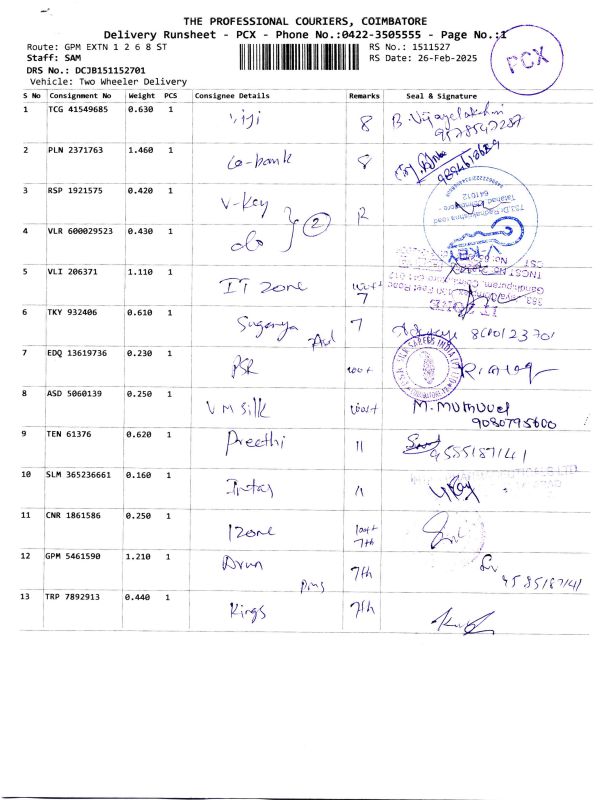 THE PROFESSIONAL COURIERS, COIMBATORE
Delivery Runsheet - PCX - Phone No.:0422-3505555 - Page No.:1
Route: GPM EXTN 1 2 6 8 ST
RS No.: 1511527
Staff: SAM
RS Date: 26-Feb-2025
DRS No.: DCJB151152701
Vehicle: Two Wheeler Delivery
PCX
S No Consignment No Weight PCS Consignee Details Remarks Seal & Signature
1 TCG 41549685 0.630 1 Viji 8 B. Vijayalakshmi
2 PLN 2371763 1.460 1 Co-bank 8
3 RSP 1921575 0.420 1 V-Key
4 VLR 600029523 0.430 1 do 2
V-KEY
5 VLI 206371 1.110 1 IT Zone 100ft
7
6 TKY 932406 0.610 1 Suganya 7
7 EDQ 13619736 0.230 1 PSR 100ft
8 ASD 5060139 0.250 1 V M Silk 100ft M. Muthuvel
9080795600
9 TEN 61376 0.620 1 Preethi 11
9585187141
10 SLM 365236661 0.160 1 Intas 11
11 CNR 1861586 0.250 1 Izone 100ft
7th
12 GPM 5461590 1.210 1 7th
9585187141
13 TRP 7892913 0.440 1 Kings 7th